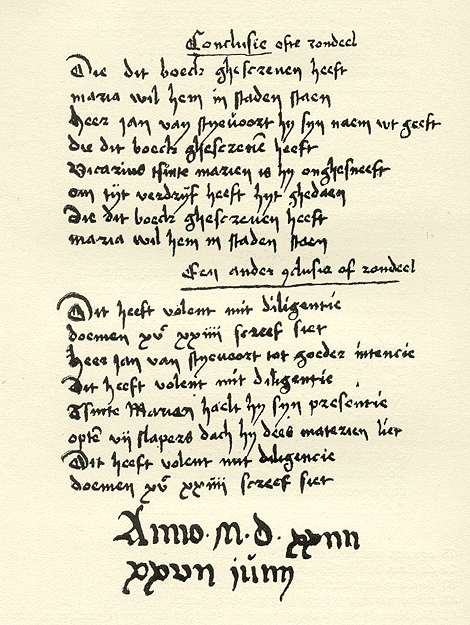 Conclusie ofte rondeel
Die dit boeck ghescreven heeft
maria wil hem in staden staen
Heer jan van stijevoort hy syn naem wt geeft
die dit boeck ghescrevē heeft
Vicarius tsinte marien is hy onghesneeft
om tijt verdrijf heeft hijt ghedaen
Die dit boeck ghescreven heeft
maria wil hem in staden staen
Een ander ꝯclusie of rondeel
Dit heeft volent mit diligentie
doemen xvᶜ xxiiii screef siet
Heer jan van stijevoort tot goeder intencie
Dit heeft volent mit diligentie
Tsinte Marien haelt hy syn presentie
optē vij slapers dach hy dees materien liet
Dit heeft volent mit diligencie
doemen xvᶜ xxiiii screef siet
Anno · M · D · xxiiii
xxvii iūnij